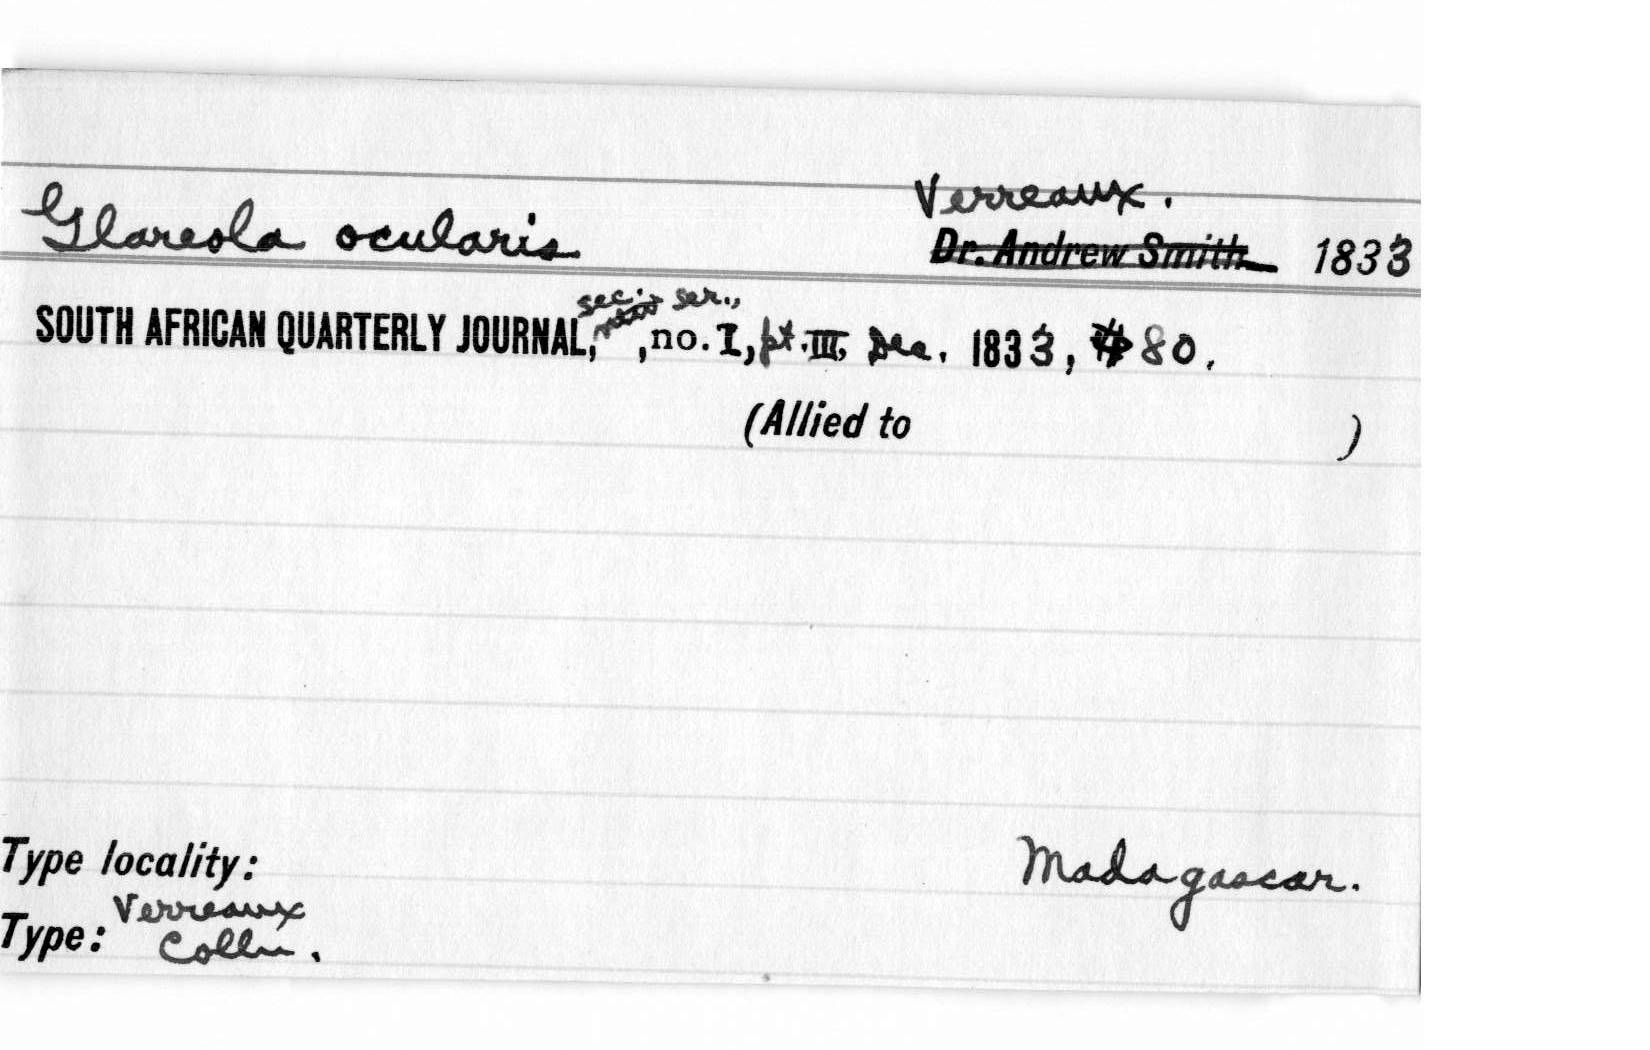 Verreaux.
Glareola ocularis Dr. Andrew Smith 1833
sec. ser.,
SOUTH AFRICAN QUARTERLY JOURNAL, , no. I, pt. III, Dec. 1833, 80.
(Allied to )
Type locality: Madagascar.
Verreaux
Type: Colln.